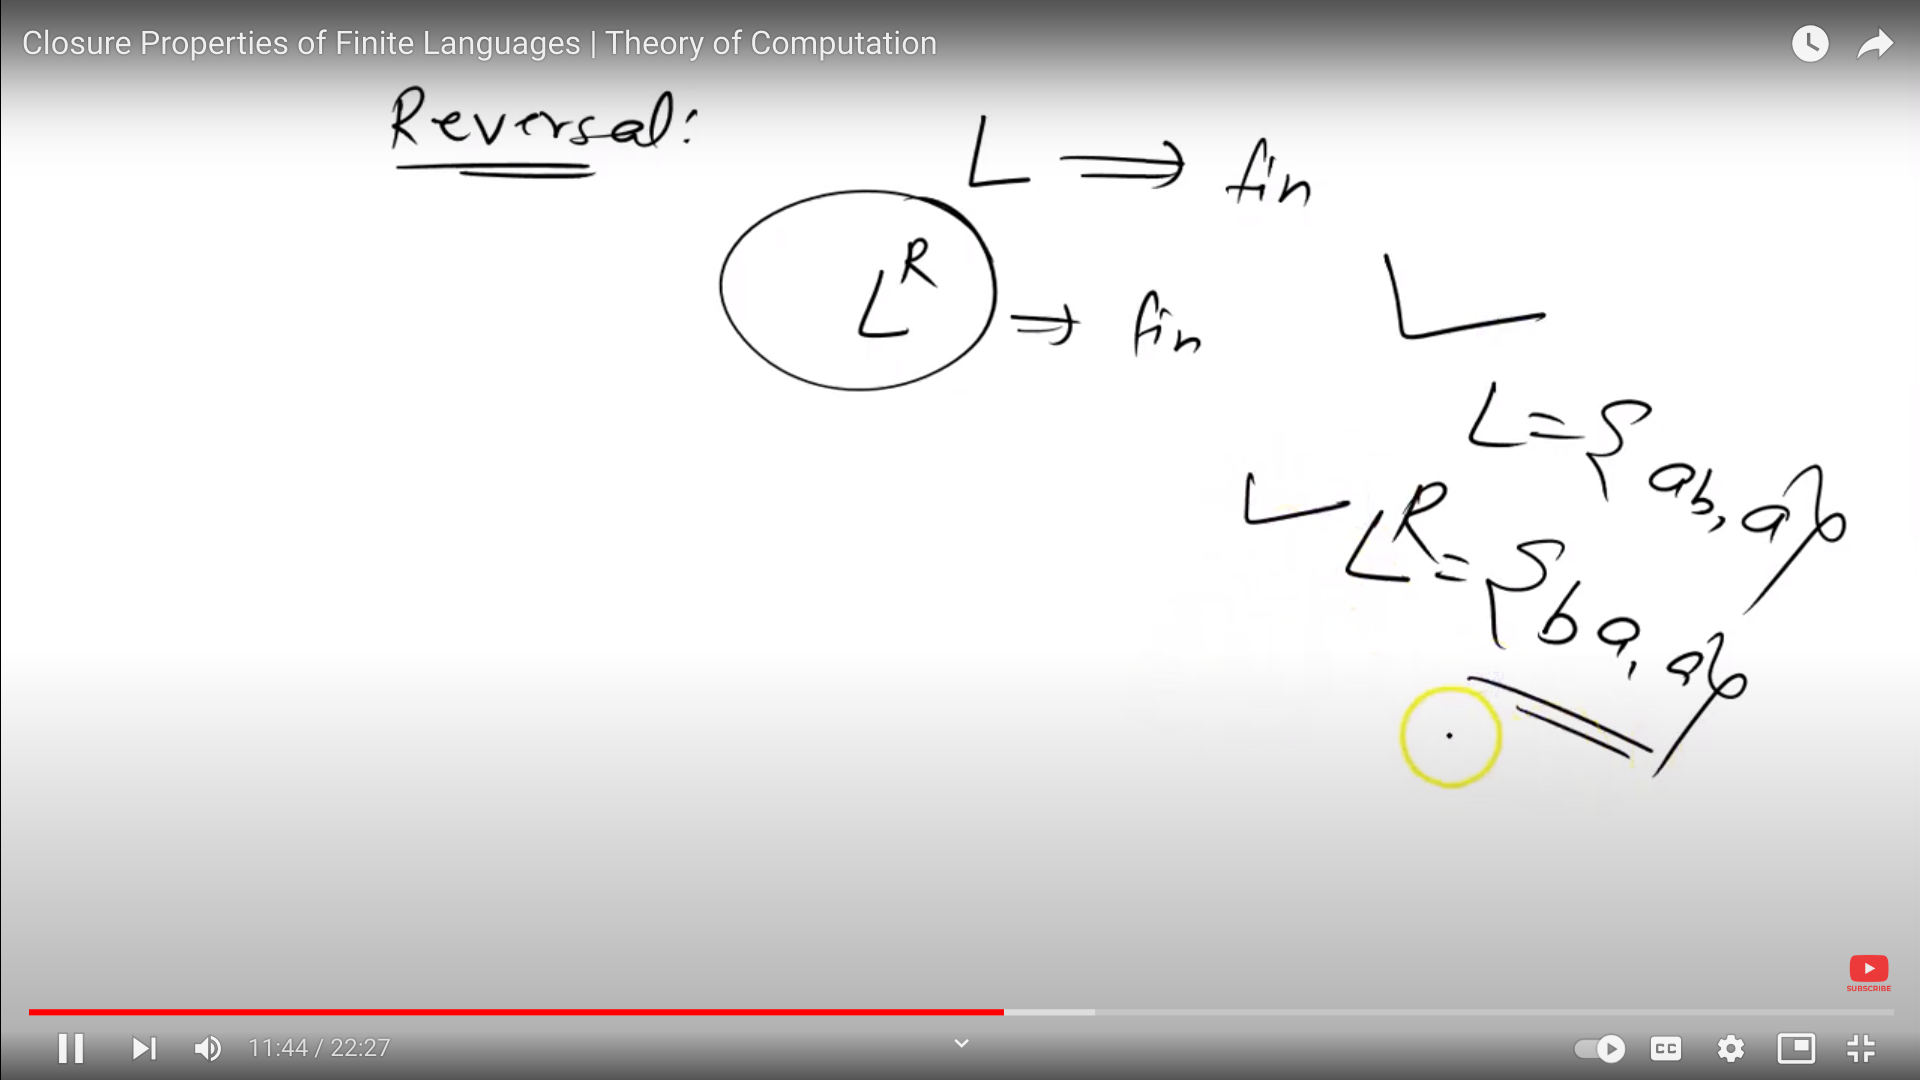 Closure Properties of Finite Languages | Theory of Computation
Reversal:
L ⟹ fin
L^R ⟹ fin
L = {ab, a}
L^R = {ba, a}
SUBSCRIBE
11:44 / 22:27
CC